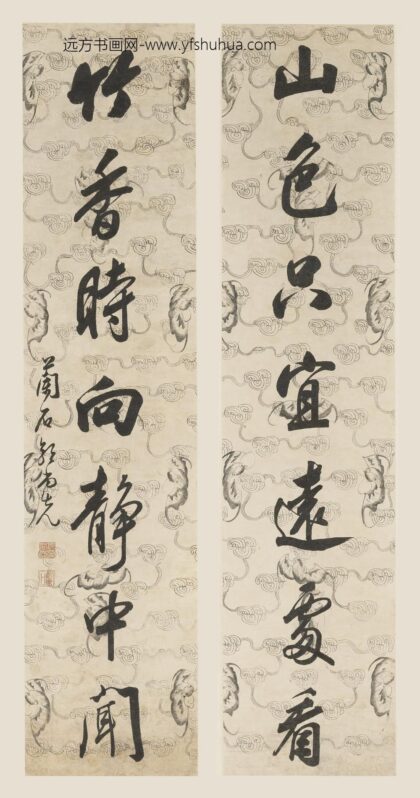 远方书画网-www.yfshuhua.com
山色只宜遠處看
竹香時向靜中聞
蘭石郭尚先